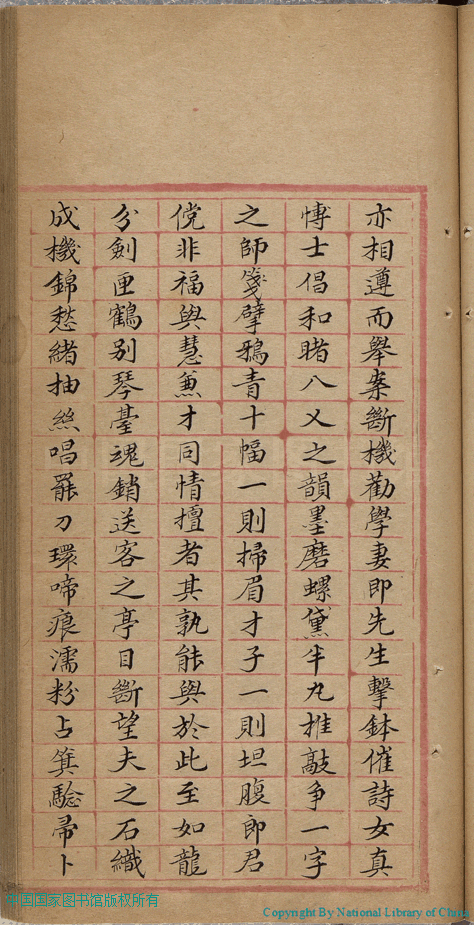 亦相遵而舉案斷機勸學妻即先生擊鉢催詩女真
博士倡和賭八乂之韻墨磨螺黛半丸推敲争一字
之師箋擘鴉青十幅一則掃眉才子一則坦腹郎君
儻非福與慧兼才同情擅者其孰能與於此至如龍
分劍匣鶴别琴臺魂銷送客之亭目斷望夫之石織
成機錦愁緒抽絲唱罷刀環啼痕濡粉占箕驗帚卜
中国国家图书馆版权所有
Copyright By National Library of China